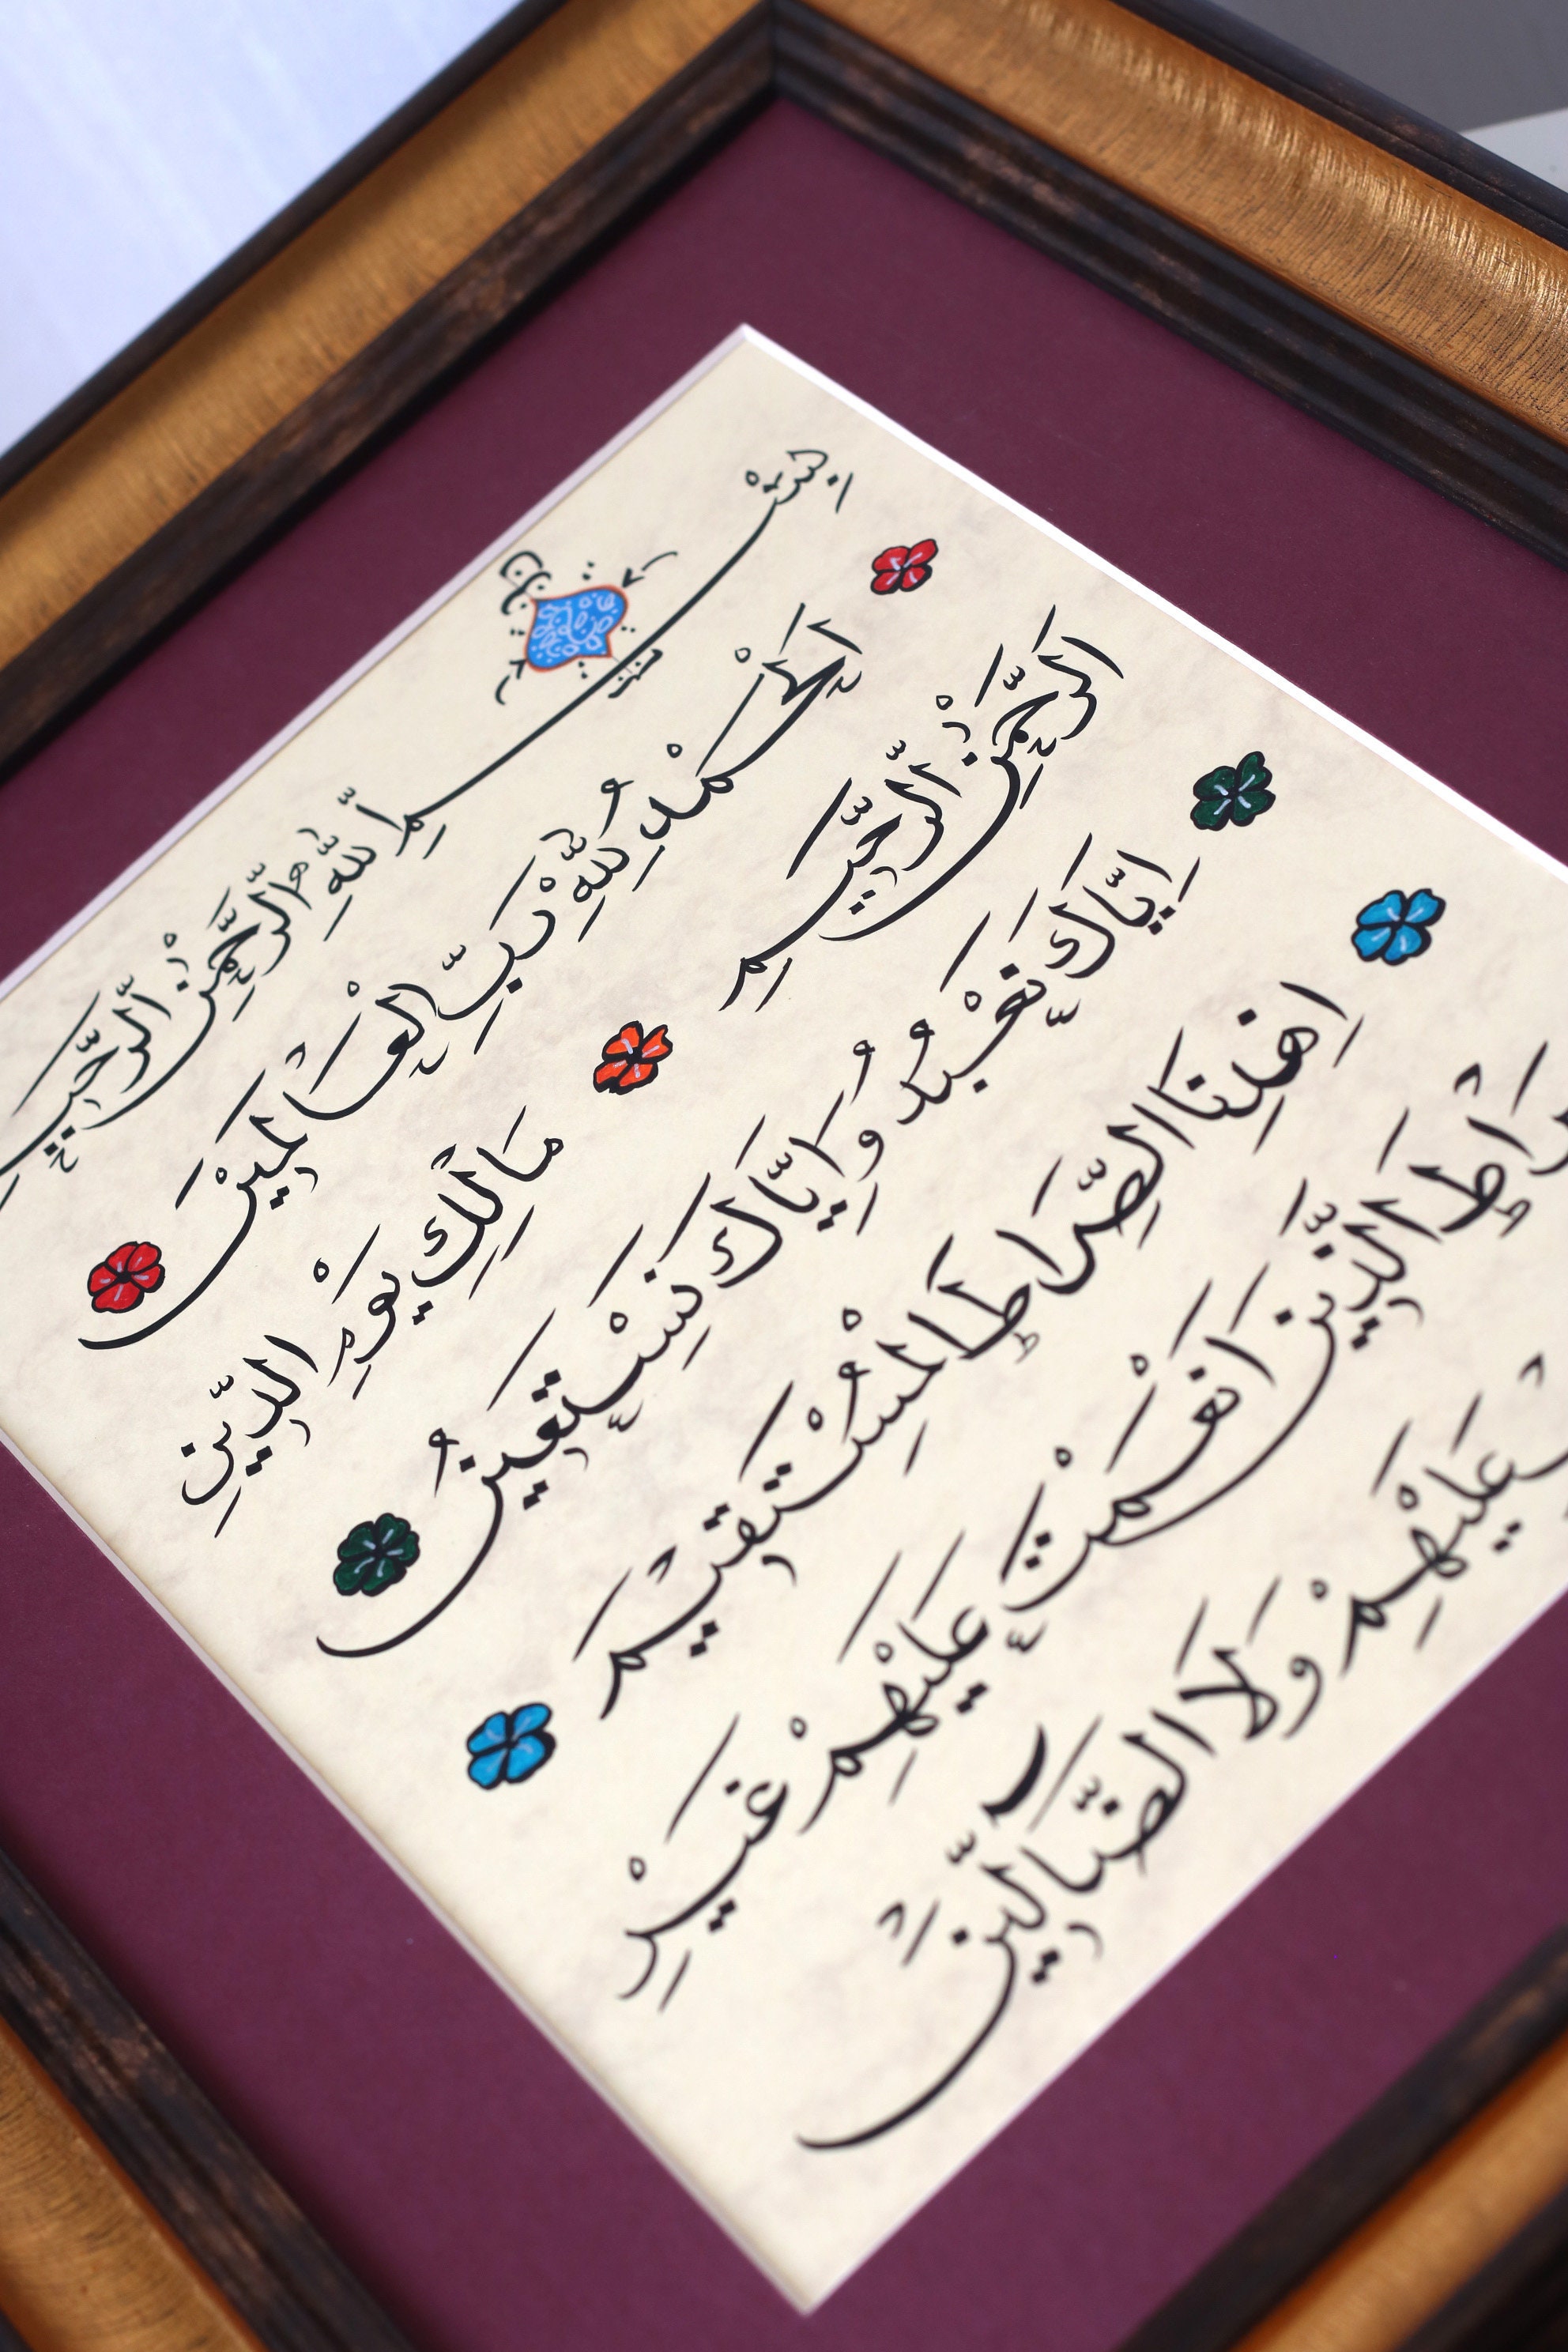 بِسْمِ اللّٰهِ الرَّحْمٰنِ الرَّحِيمِ
اَلْحَمْدُ لِلّٰهِ رَبِّ الْعَالَمِينَ
اَلرَّحْمٰنِ الرَّحِيمِ مَالِكِ يَوْمِ الدِّينِ
اِيَّاكَ نَعْبُدُ وَاِيَّاكَ نَسْتَعِينُ
اِهْدِنَا الصِّرَاطَ الْمُسْتَقِيمَ
الَّذِينَ اَنْعَمْتَ عَلَيْهِمْ غَيْرِ
عَلَيْهِمْ وَلَا الضَّالِّينَ